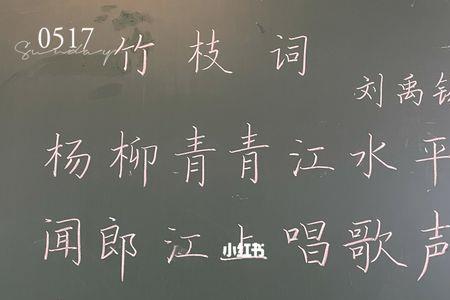 0517
Sunday
竹枝词
刘禹锡
杨柳青青江水平
闻郎江上唱歌声
小红书